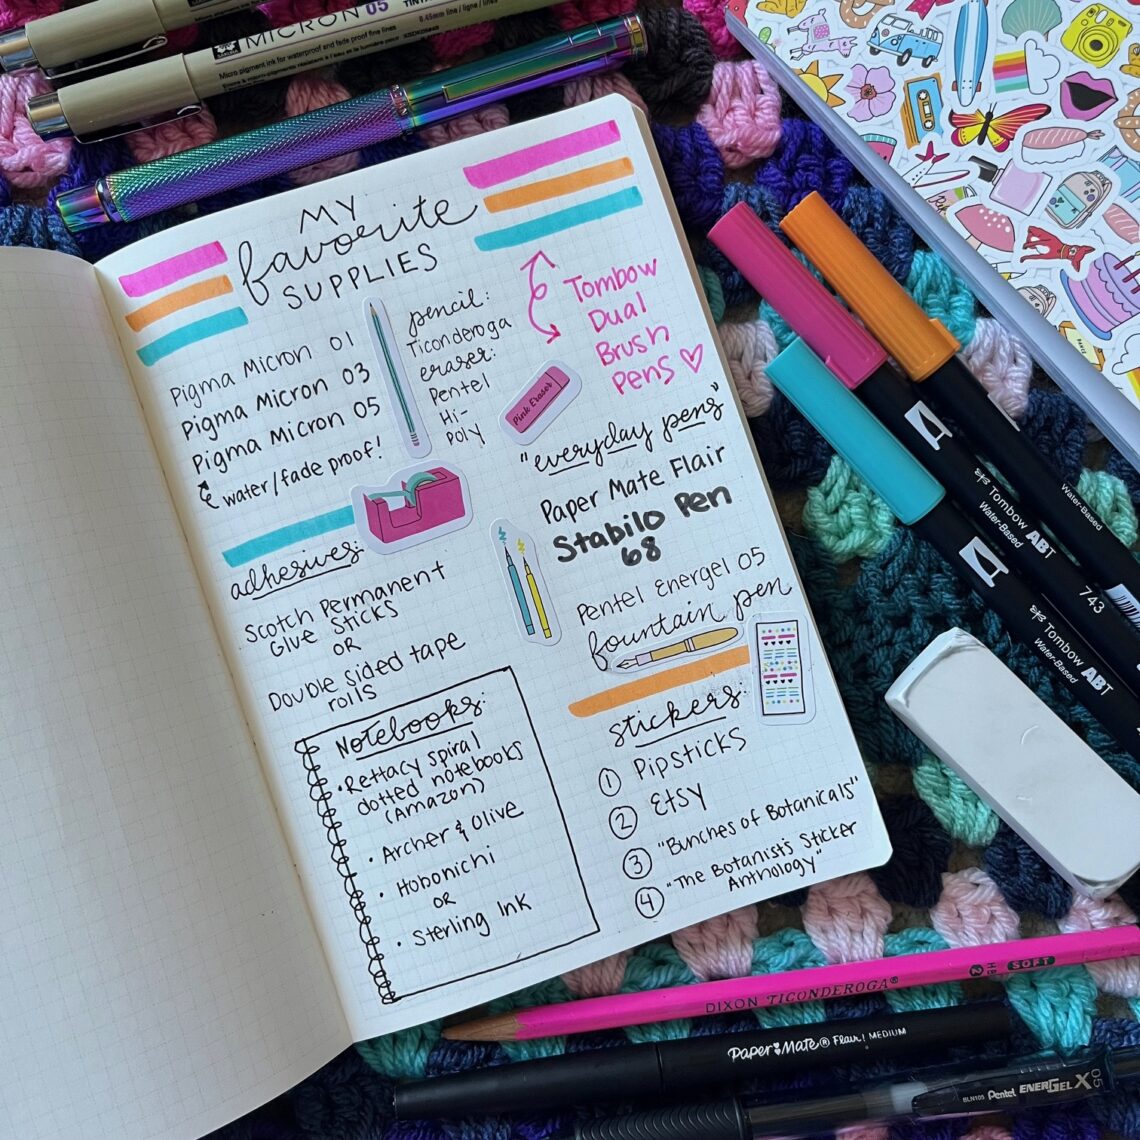 MICRON 05
0.45mm line / ligne / línea
Micro pigment ink for waterproof and fade proof fine lines
MY
favorite
SUPPLIES
Pigma Micron 01
Pigma Micron 03
Pigma Micron 05
water/fade proof!
pencil:
Ticonderoga
eraser:
Pentel
Hi-
Poly
Pink Eraser
Tombow
Dual
Brush
Pens
"everyday pens"
Paper Mate Flair
Stabilo Pen
68
Pentel Energel 05
fountain pen
adhesives
Scotch Permanent
Glue Sticks
OR
Double sided tape
rolls
Notebooks:
• Rettacy spiral
dotted notebooks
(Amazon)
• Archer & Olive
• Hobonichi
OR
• Sterling Ink
stickers:
1 Pipsticks
2 Etsy
3 "Bunches of Botanicals"
4 "The Botanist's Sticker
Anthology"
Water-Based
Tombow ABT
Water-Based
743
Tombow ABT
Water-Based
DIXON TICONDEROGA® 2 HB SOFT
PAPER MATE® Flair! MEDIUM
BLN105 Pentel ENERGEL X 05